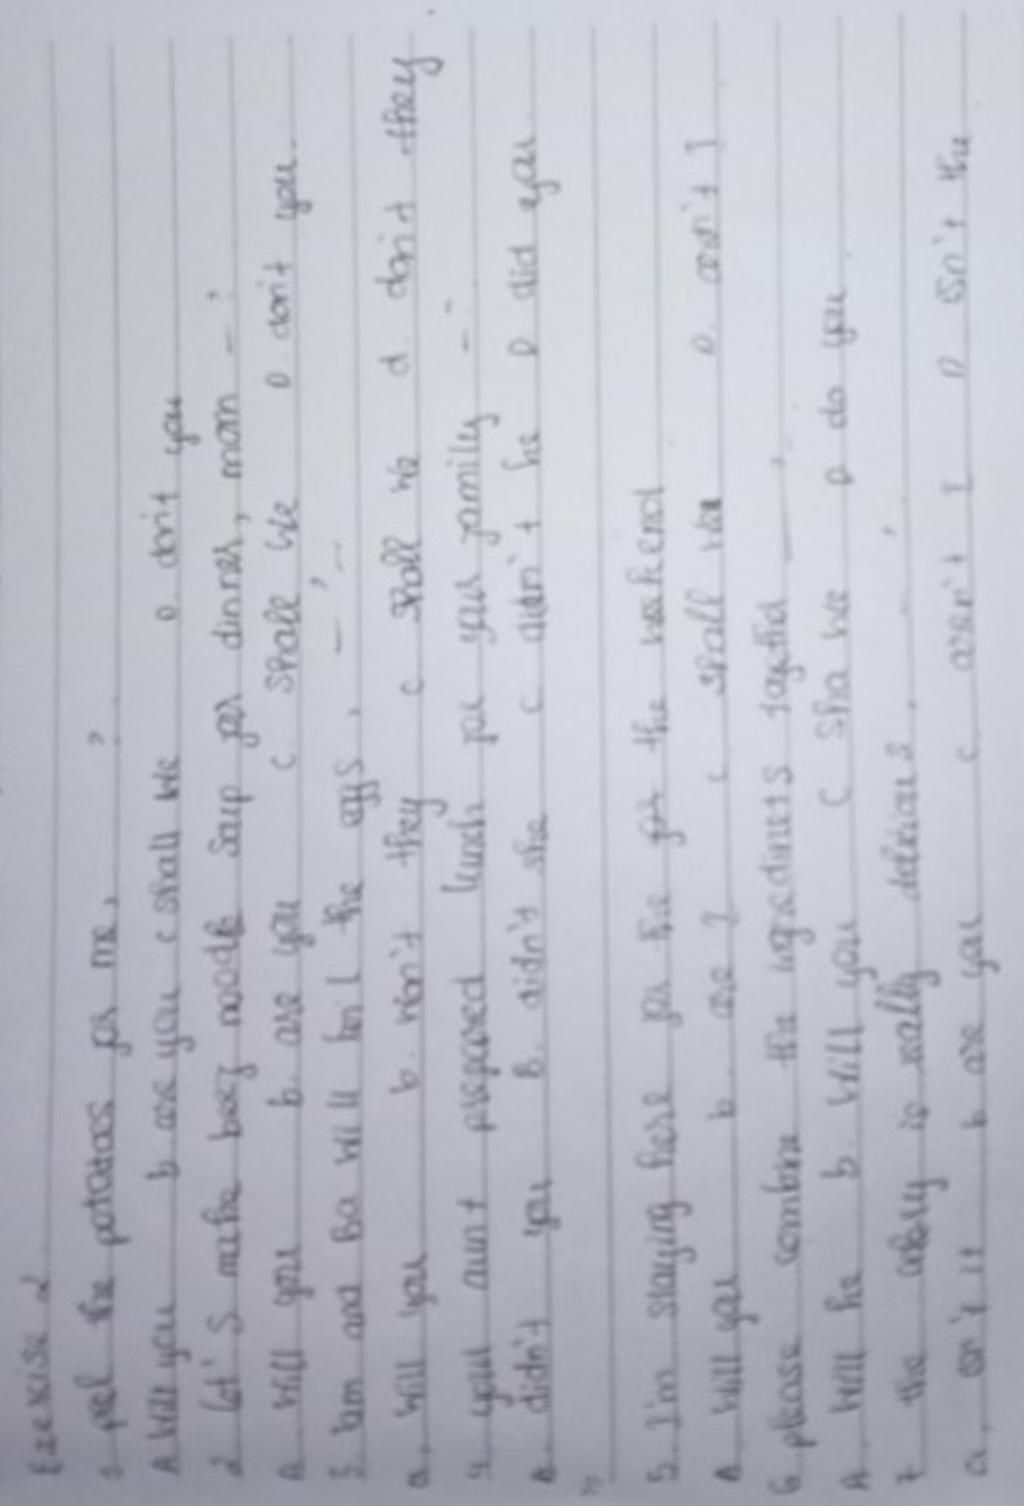 Exexise 2
1 pel the potatos for me, ?
A Will you b are you c shall we D. don't you
2 let's make beef noodle soup for dinner, mom - ?
A will you b. are you c shall we D don't you.
3 Nam and Ba will boil the eggs, - ? -
a, will you b. won't they c shall we d. don't they
4 your aunt prepared lunch for your family - ?
A. didn't you B. didn't she c didn't he D did you.
5 I'm staying here for the for the weekend
A will you b are I c shall we D. aren't I
6 please combine the ingredients togethd ?
A. Will he b will you C Sha we D do you
7 the celery is really delicious, - ?
a, isn't it b are you c aren't I D isn't the